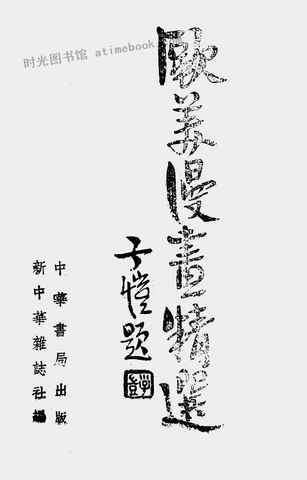 时光图书馆 atimebook
歐美漫畫精選
子愷題
中華書局出版
新中華雜誌社編